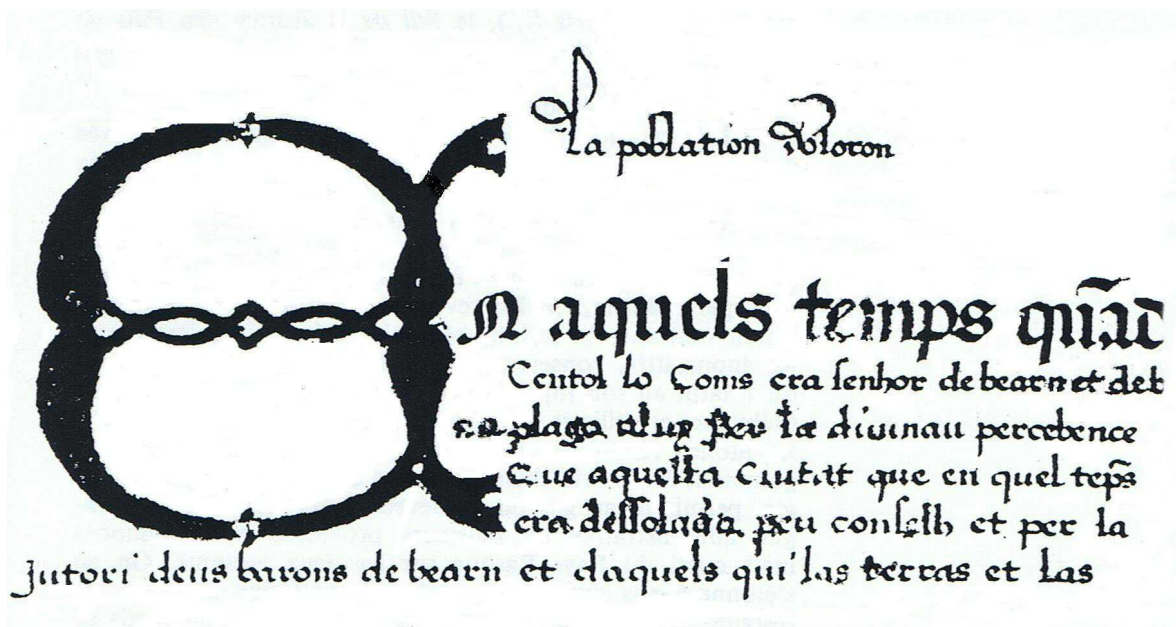 La poblation doloron
En aquels temps quāt
Centol lo Coms era senhor de bearn et de
plaga a luy per la divinau percebence
Que aquesta Ciutat que en quel tēps
era dessolada peu conselh et per la
Jutori deus barons de bearn et daquels qui las terras et las